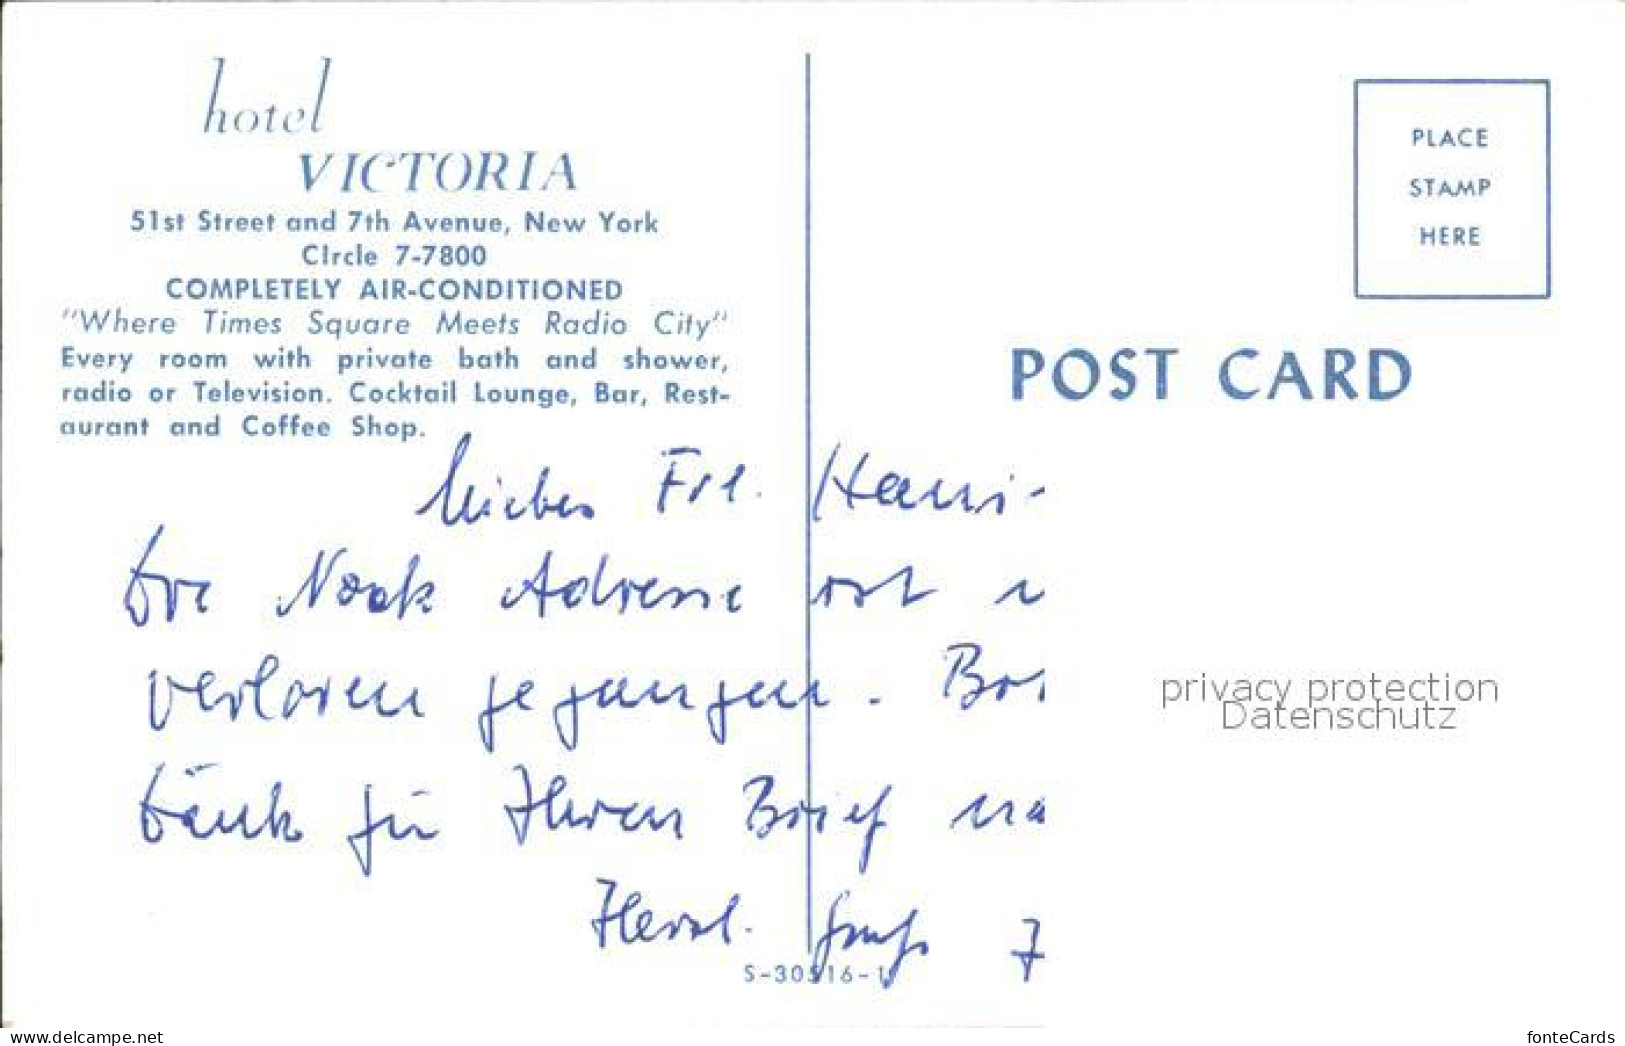 hotel
VICTORIA
51st Street and 7th Avenue, New York
CIrcle 7-7800
COMPLETELY AIR-CONDITIONED
"Where Times Square Meets Radio City"
Every room with private bath and shower,
radio or Television. Cocktail Lounge, Bar, Rest-
aurant and Coffee Shop.
PLACE
STAMP
HERE
POST CARD
Liebes Frl. Hansi-
Adresse ist
verloren gegangen.
für Ihren Brief
Herzl. Gruß
privacy protection
Datenschutz
www.delcampe.net
fonteCards